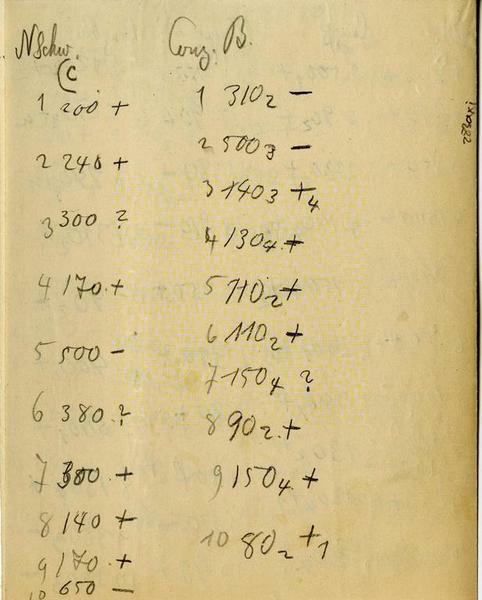 NSchw.
(C
1 200 +
2 240 +
3 300 ?
4 170 +
5 500 –
6 380 ?
7 380 +
8 140 +
9 170 +
10 650 –
Conz. B.
1 310₂ –
2 500₃ –
3 140₃ +₄
4 130₄ +
5 110₂ +
6 110₂ +
7 150₄ ?
8 90₂ +
9 150₄ +
10 80₂ +₁